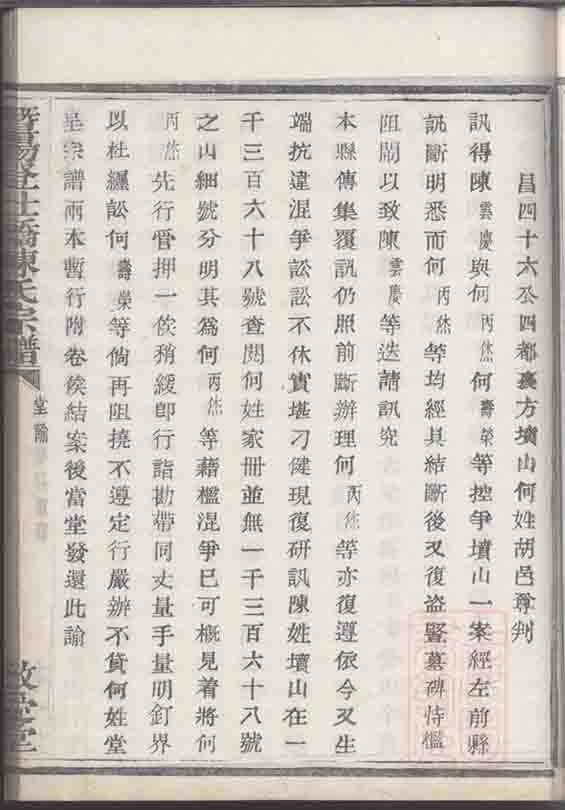 昌四十六公四都裏方墳山何姓胡邑尊判
訊得陳雲慶與何丙然何壽榮等控爭墳山一案經左前縣
訊斷明悉而何丙然等均經具結斷後又復盜竪墓碑恃橫
阻鬧以致陳雲慶等迭請訊究
本縣傳集覆訊仍照前斷辦理何丙然等亦復遵依今又生
端抗違混爭訟訟不休實堪刁健現復研訊陳姓墳山在一
千三百六十八號查閱何姓家冊並無一千三百六十八號
之山細號分明其為何丙然等藉橫混爭已可概見着將何
丙然先行管押一俟稍緩卽行詣勘帶同丈量手量明釘界
以杜纏訟何壽榮等倘再阻撓不遵定行嚴辦不貸何姓堂
呈宗譜兩本暫行附卷俟結案後當堂發還此諭
暨陽登仕橋陳氏宗譜
堂諭
敦
堂